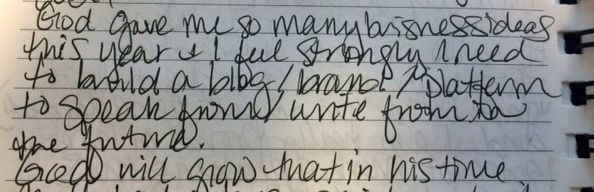 God gave me so many bisness ideas
this year & I feel strongly I need
to build a blog/brand/platform
to speak from/write from in
the future.
God will grow that in his time